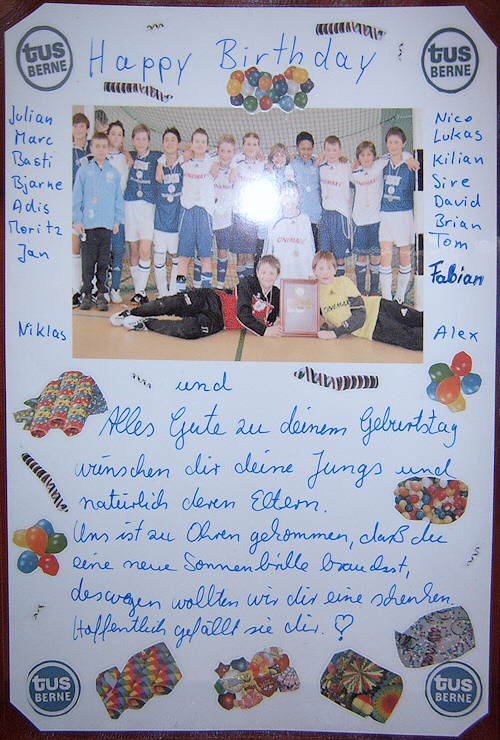 tus BERNE
Happy Birthday
tus BERNE
Julian
Marc
Basti
Bjarne
Adis
Moritz
Jan
Niklas
Nico
Lukas
Kilian
Sire
David
Brian
Tom
Fabian
Alex
CINEMAXX
und
Alles Gute zu deinem Geburtstag
wünschen dir deine Jungs und
natürlich deren Eltern.
Uns ist zu Ohren gekommen, daß du
eine neue Sonnenbrille brauchst,
deswegen wollten wir dir eine schenken.
Hoffentlich gefällt sie dir. ♡
tus BERNE
tus BERNE